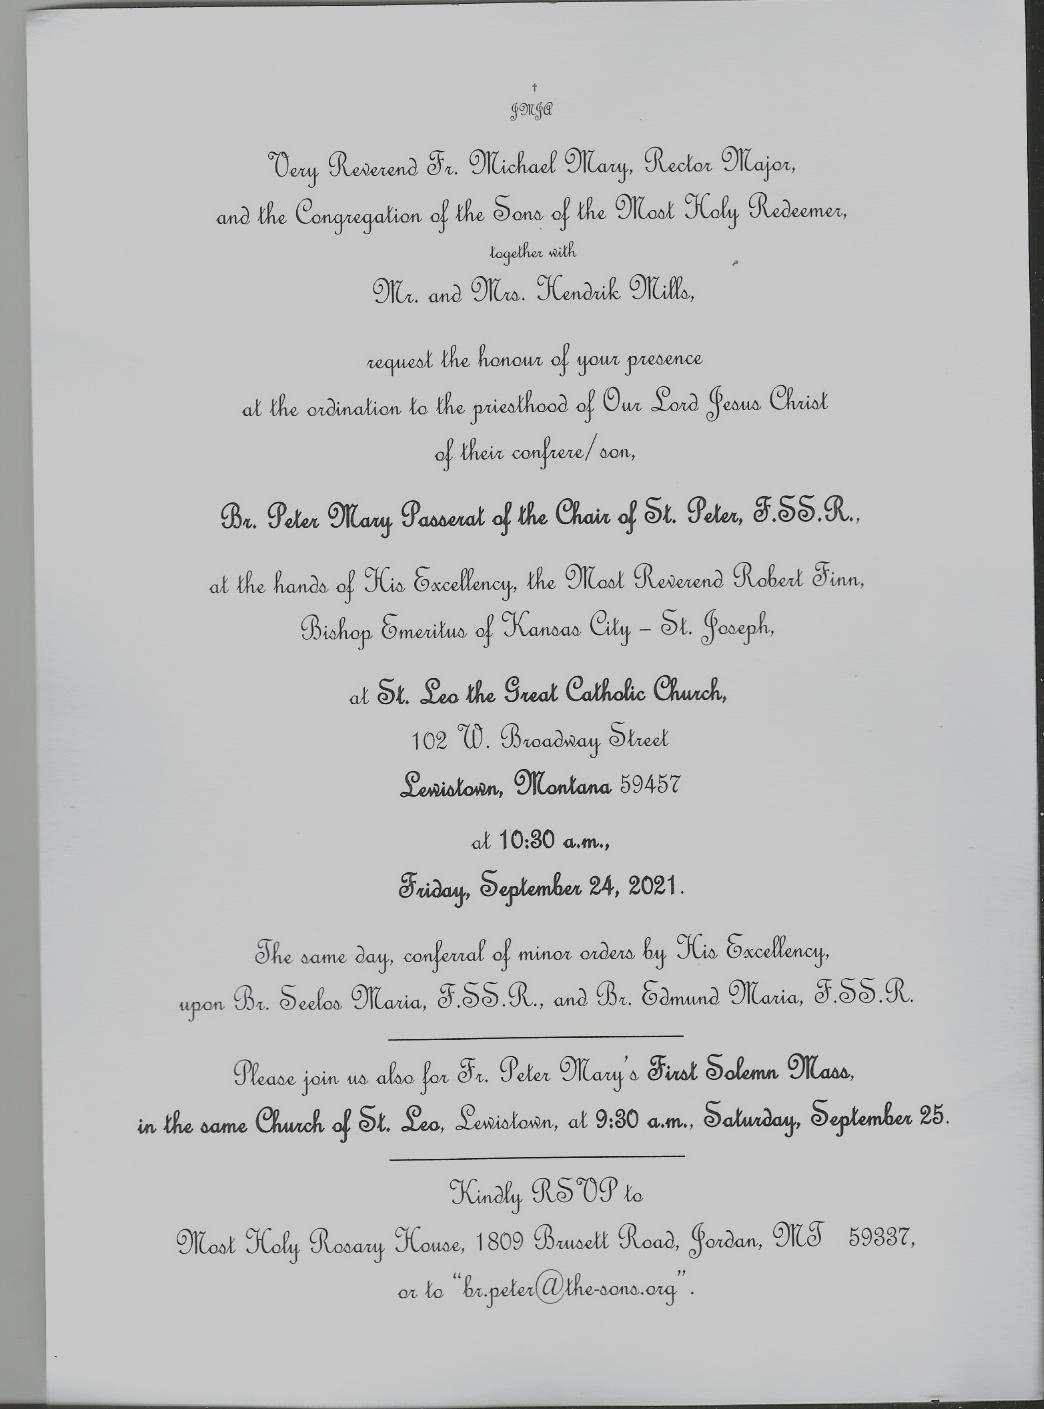 †
JMJA
Very Reverend Fr. Michael Mary, Rector Major,
and the Congregation of the Sons of the Most Holy Redeemer,
together with
Mr. and Mrs. Hendrik Mills,
request the honour of your presence
at the ordination to the priesthood of Our Lord Jesus Christ
of their confrere/son,
Br. Peter Mary Passerat of the Chair of St. Peter, F.SS.R.,
at the hands of His Excellency, the Most Reverend Robert Finn,
Bishop Emeritus of Kansas City – St. Joseph,
at St. Leo the Great Catholic Church,
102 W. Broadway Street
Lewistown, Montana 59457
at 10:30 a.m.,
Friday, September 24, 2021.
The same day, conferral of minor orders by His Excellency,
upon Br. Seelos Maria, F.SS.R., and Br. Edmund Maria, F.SS.R.
Please join us also for Fr. Peter Mary's First Solemn Mass,
in the same Church of St. Leo, Lewistown, at 9:30 a.m., Saturday, September 25.
Kindly RSVP to
Most Holy Rosary House, 1809 Brusett Road, Jordan, MT 59337,
or to “br.peter@the-sons.org”.